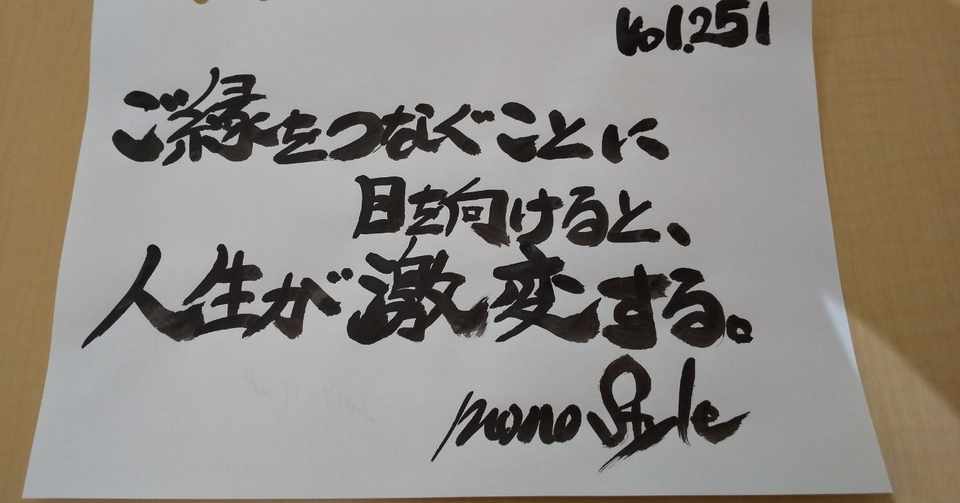 Vol.251
ご縁をつなぐことに
目を向けると、
人生が激変する。
mono Style